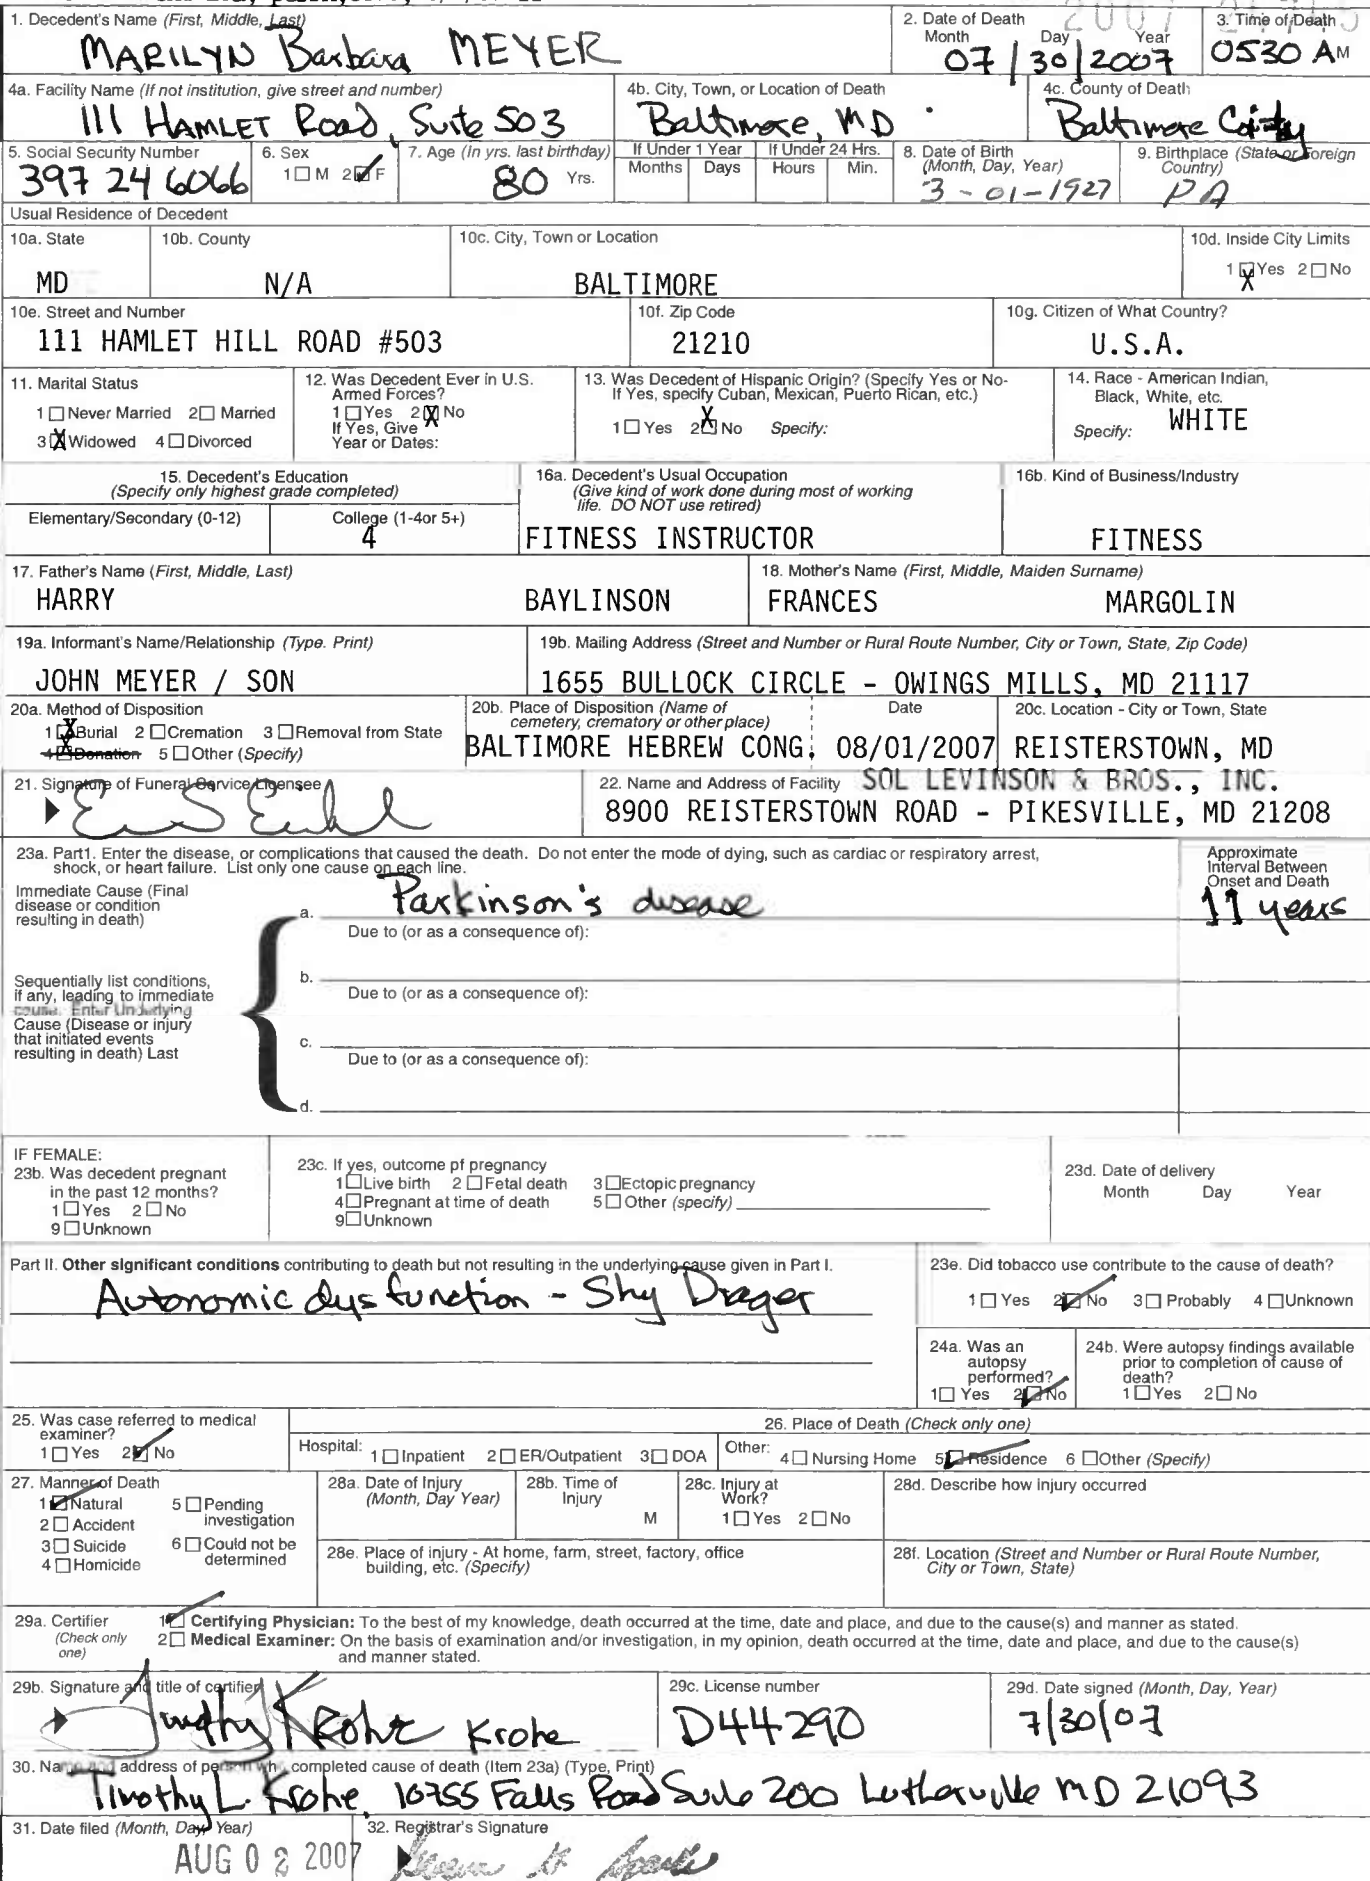 1. Decedent's Name (First, Middle, Last)
MARILYN Barbara MEYER
2. Date of Death
Month Day Year
07 / 30 / 2007
3. Time of Death
0530 A M
4a. Facility Name (If not institution, give street and number)
111 HAMLET Road, Suite 503
4b. City, Town, or Location of Death
Baltimore, MD
4c. County of Death
Baltimore
5. Social Security Number
397 24 6066
6. Sex
1☐ M 2☑ F
7. Age (In yrs. last birthday)
80 Yrs.
If Under 1 Year
Months Days
If Under 24 Hrs.
Hours Min.
8. Date of Birth
(Month, Day, Year)
3-01-1927
9. Birthplace (State or Foreign
Country)
PA
Usual Residence of Decedent
10a. State
MD
10b. County
N/A
10c. City, Town or Location
BALTIMORE
10d. Inside City Limits
1☒Yes 2☐No
10e. Street and Number
111 HAMLET HILL ROAD #503
10f. Zip Code
21210
10g. Citizen of What Country?
U.S.A.
11. Marital Status
1☐Never Married 2☐ Married
3☒Widowed 4☐Divorced
12. Was Decedent Ever in U.S.
Armed Forces?
1☐Yes 2☒No
If Yes, Give
Year or Dates:
13. Was Decedent of Hispanic Origin? (Specify Yes or No-
If Yes, specify Cuban, Mexican, Puerto Rican, etc.)
1☐Yes 2☒No Specify:
14. Race - American Indian,
Black, White, etc.
Specify: WHITE
15. Decedent's Education
(Specify only highest grade completed)
Elementary/Secondary (0-12)
College (1-4or 5+)
4
16a. Decedent's Usual Occupation
(Give kind of work done during most of working
life. DO NOT use retired)
FITNESS INSTRUCTOR
16b. Kind of Business/Industry
FITNESS
17. Father's Name (First, Middle, Last)
HARRY BAYLINSON
18. Mother's Name (First, Middle, Maiden Surname)
FRANCES MARGOLIN
19a. Informant's Name/Relationship (Type. Print)
JOHN MEYER / SON
19b. Mailing Address (Street and Number or Rural Route Number, City or Town, State, Zip Code)
1655 BULLOCK CIRCLE - OWINGS MILLS, MD 21117
20a. Method of Disposition
1☒Burial 2☐Cremation 3☐Removal from State
4☒Donation 5☐Other (Specify)
20b. Place of Disposition (Name of
cemetery, crematory or other place)
BALTIMORE HEBREW CONG.
Date
08/01/2007
20c. Location - City or Town, State
REISTERSTOWN, MD
21. Signature of Funeral Service Licensee
22. Name and Address of Facility SOL LEVINSON & BROS., INC.
8900 REISTERSTOWN ROAD - PIKESVILLE, MD 21208
23a. Part1. Enter the disease, or complications that caused the death. Do not enter the mode of dying, such as cardiac or respiratory arrest,
shock, or heart failure. List only one cause on each line.
Approximate
Interval Between
Onset and Death
Immediate Cause (Final
disease or condition
resulting in death)
a. Parkinson's disease
11 years
Due to (or as a consequence of):
Sequentially list conditions,
if any, leading to immediate
cause. Enter Underlying
Cause (Disease or injury
that initiated events
resulting in death) Last
b.
Due to (or as a consequence of):
c.
Due to (or as a consequence of):
d.
IF FEMALE:
23b. Was decedent pregnant
in the past 12 months?
1☐Yes 2☐No
9☐Unknown
23c. If yes, outcome pf pregnancy
1☐Live birth 2☐Fetal death 3☐Ectopic pregnancy
4☐Pregnant at time of death 5☐Other (specify)
9☐Unknown
23d. Date of delivery
Month Day Year
Part II. Other significant conditions contributing to death but not resulting in the underlying cause given in Part I.
Autonomic dysfunction - Shy Drager
23e. Did tobacco use contribute to the cause of death?
1☐Yes 2☑No 3☐Probably 4☐Unknown
24a. Was an
autopsy
performed?
1☐ Yes 2☑No
24b. Were autopsy findings available
prior to completion of cause of
death?
1☐Yes 2☐No
25. Was case referred to medical
examiner?
1☐Yes 2☑No
26. Place of Death (Check only one)
Hospital: 1☐Inpatient 2☐ER/Outpatient 3☐DOA
Other: 4☐Nursing Home 5☑Residence 6☐Other (Specify)
27. Manner of Death
1☑Natural 5☐Pending
investigation
2☐Accident
3☐Suicide 6☐Could not be
determined
4☐Homicide
28a. Date of Injury
(Month, Day Year)
28b. Time of
Injury
M
28c. Injury at
Work?
1☐Yes 2☐No
28d. Describe how injury occurred
28e. Place of injury - At home, farm, street, factory, office
building, etc. (Specify)
28f. Location (Street and Number or Rural Route Number,
City or Town, State)
29a. Certifier
(Check only
one)
1☑ Certifying Physician: To the best of my knowledge, death occurred at the time, date and place, and due to the cause(s) and manner as stated.
2☐ Medical Examiner: On the basis of examination and/or investigation, in my opinion, death occurred at the time, date and place, and due to the cause(s)
and manner stated.
29b. Signature and title of certifier
Timothy Krohe Krohe
29c. License number
D44290
29d. Date signed (Month, Day, Year)
7/30/07
30. Name and address of person who completed cause of death (Item 23a) (Type, Print)
Timothy L. Krohe, 10755 Falls Road Suite 200 Lutherville MD 21093
31. Date filed (Month, Day, Year)
AUG 02 2007
32. Registrar's Signature